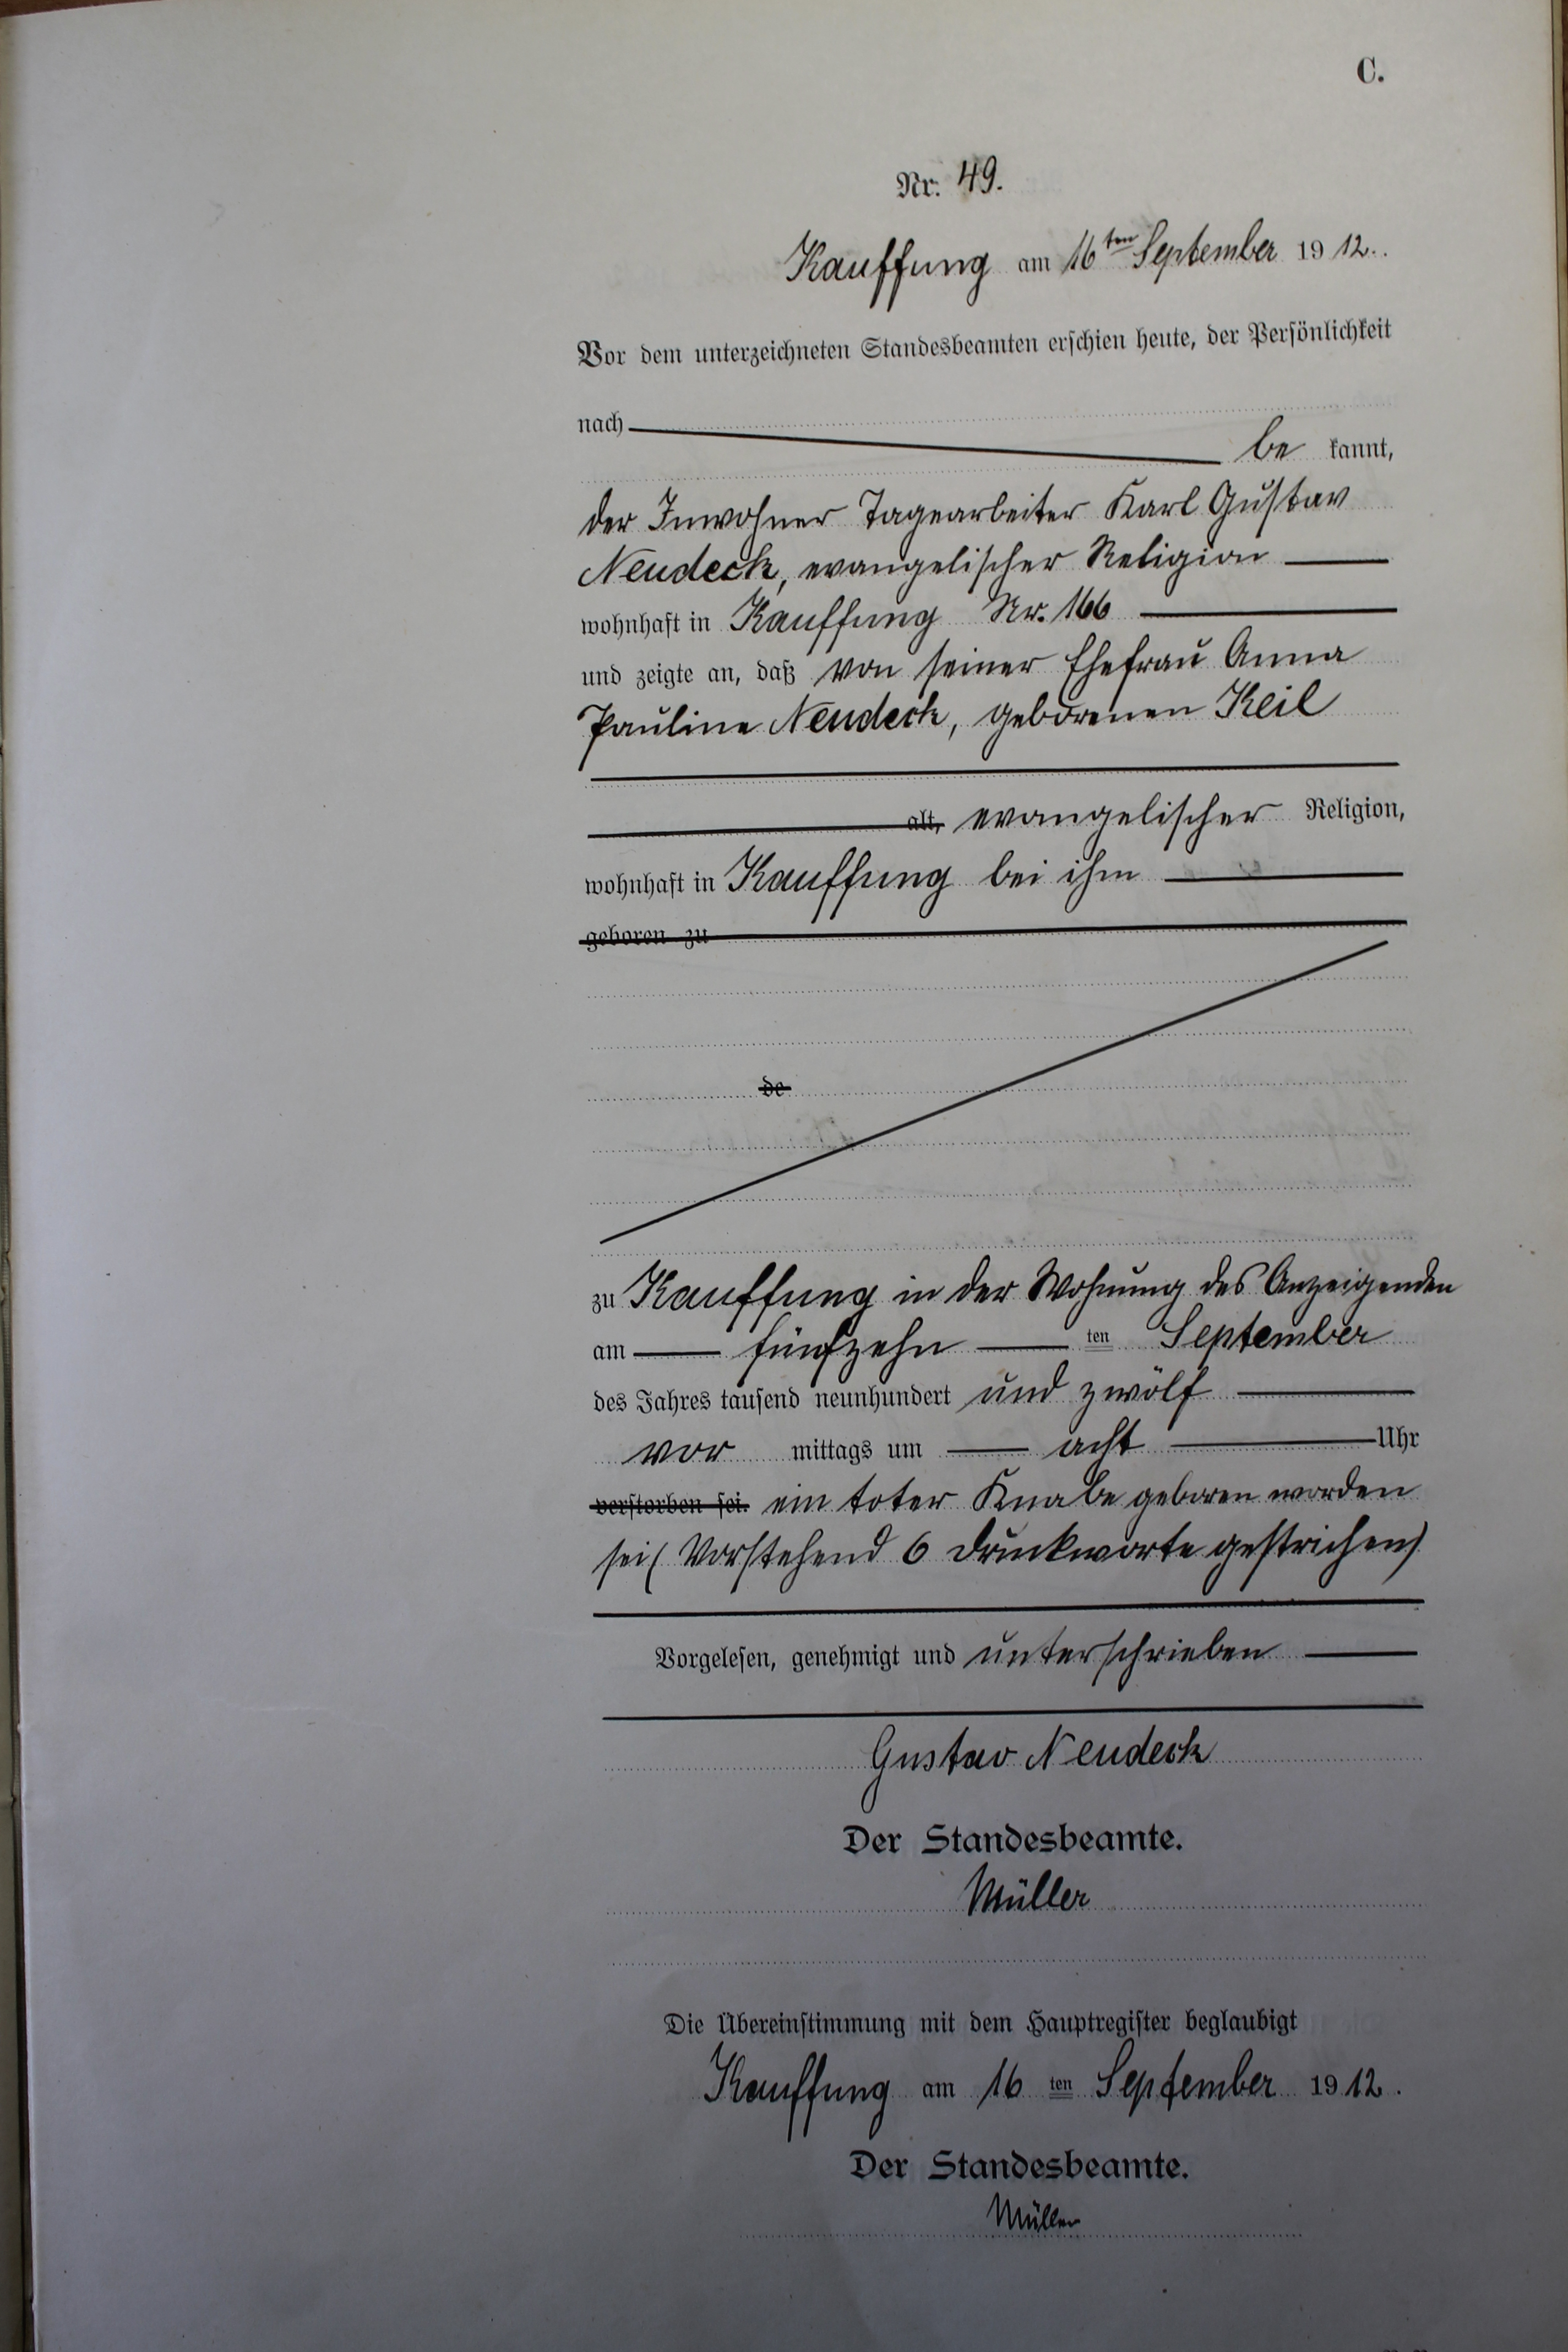 C.
Nr. 49.
Kauffung am 16ten September 1912.
Vor dem unterzeichneten Standesbeamten erschien heute, der Persönlichkeit
nach
be kannt,
der Inwohner Tagearbeiter Karl Gustav
Neudeck, evangelischer Religion
wohnhaft in Kauffung Nr. 166
und zeigte an, daß von seiner Ehefrau Anna
Pauline Neudeck, geborenen Keil
alt, evangelischer Religion,
wohnhaft in Kauffung bei ihm
geboren zu
de
zu Kauffung in der Wohnung des Anzeigenden
am fünfzehn ten September
des Jahres tausend neunhundert und zwölf
vor mittags um acht Uhr
verstorben sei. ein toter Knabe geboren worden
sei (Vorstehend 6 Druckworte gestrichen)
Vorgelesen, genehmigt und unterschrieben
Gustav Neudeck
Der Standesbeamte.
Müller
Die Übereinstimmung mit dem Hauptregister beglaubigt
Kauffung am 16 ten September 1912.
Der Standesbeamte.
Müller